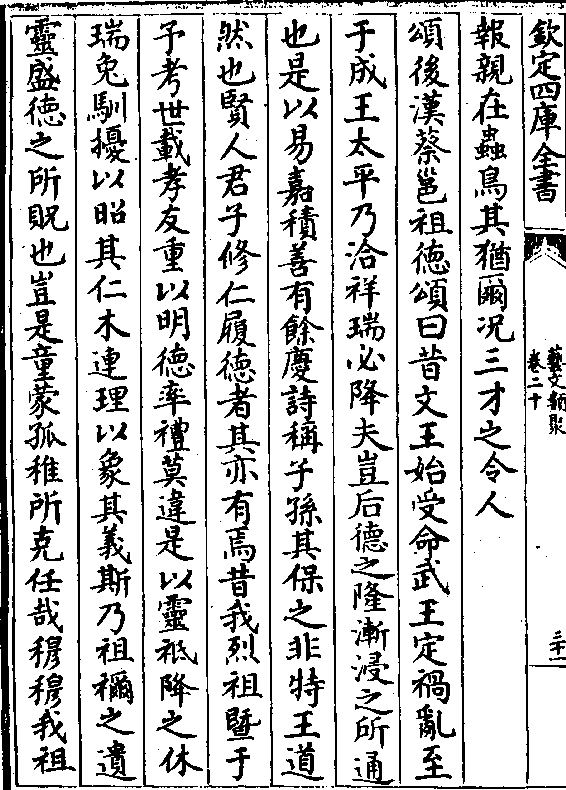 欽定四庫全書
藝文類聚
卷二十
三十一
報親在蟲鳥其猶爾況三才之令人
頌後漢蔡邕祖德頌曰昔文王始受命武王定禍亂至
于成王太平乃洽祥瑞必降夫豈后德之隆漸浸之所通
也是以易嘉積善有餘慶詩稱子孫其保之非特王道
然也賢人君子修仁履德者其亦有焉昔我烈祖暨于
予考世載孝友重以明德率禮莫違是以靈祇降之休
瑞兔馴擾以昭其仁木連理以象其義斯乃祖禰之遺
靈盛德之所貺也豈是童蒙孤稚所克任哉穆穆我祖